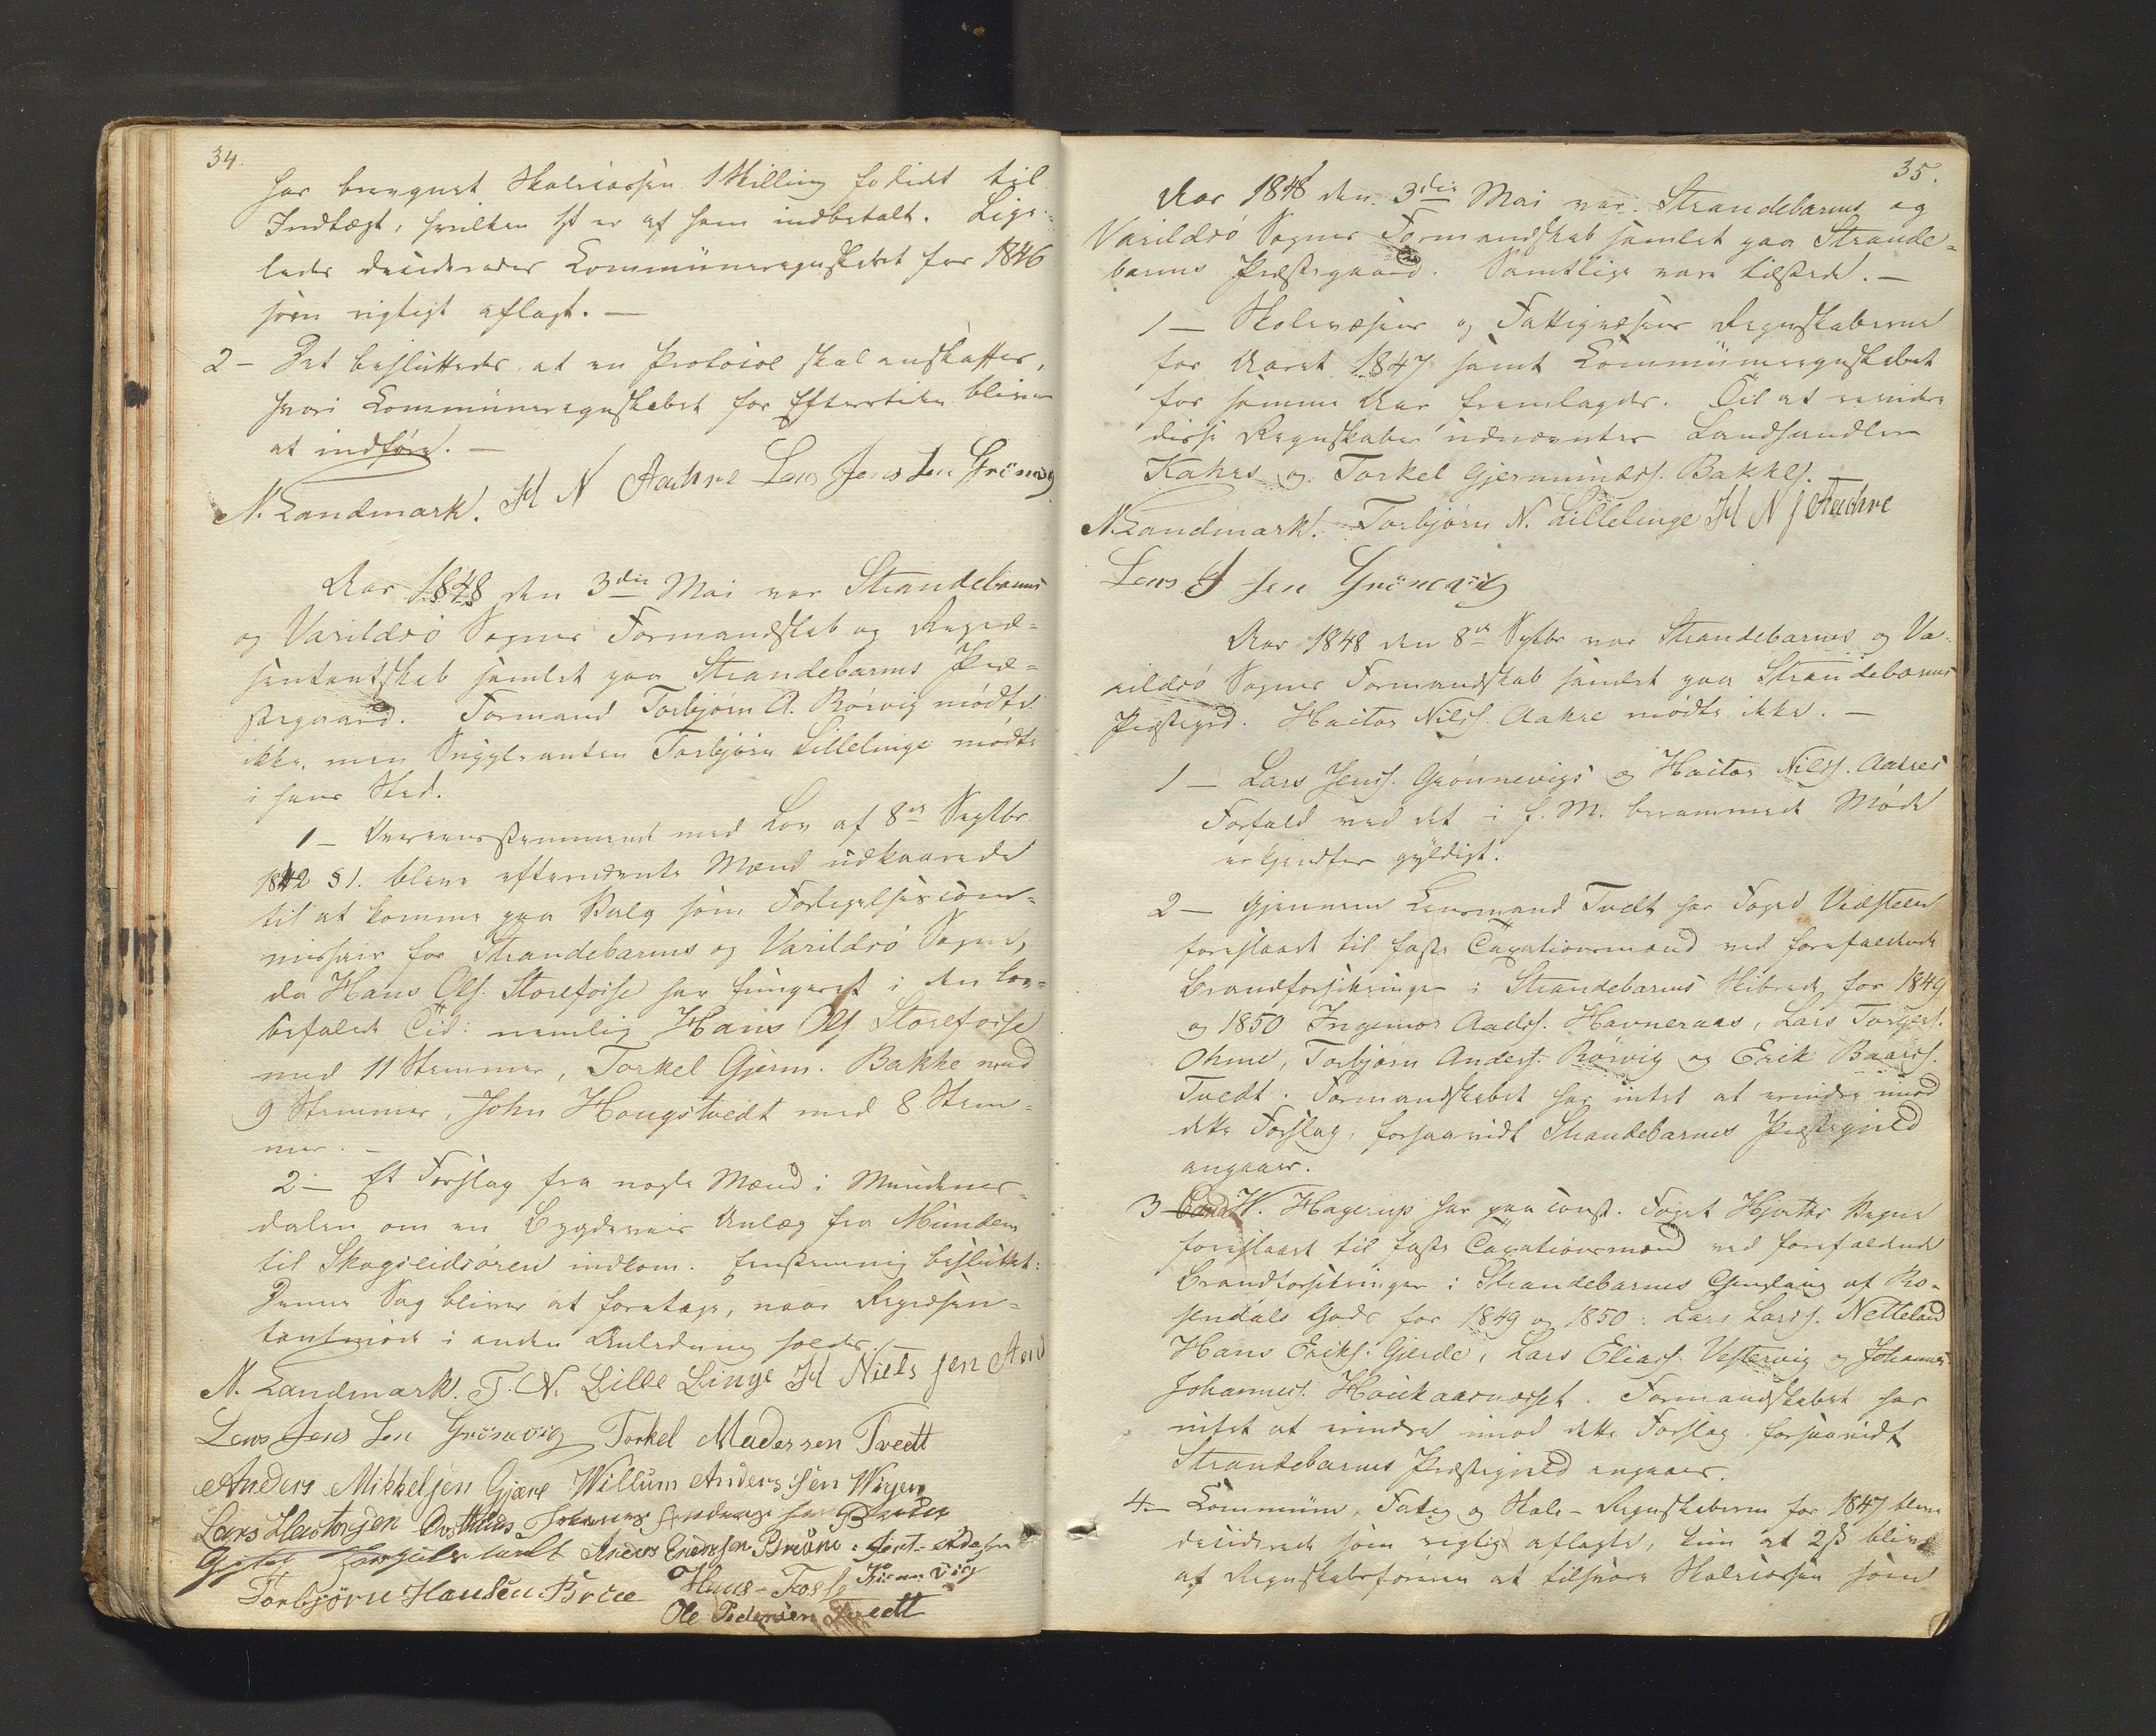 34.
har beregnet Skolecassen 1 Skilling for lidt til
Indtægt, hvilken ß er af ham indbetalt. Lige-
ledes decideredes Communeregnskabet for 1846
som rigtigt aflagt. —
2 – Det besluttedes, at en Protocol skal anskaffes,
hvori Communeregnskabet for Eftertiden bliver
at indføre. —
N. Landmark. H N Aachre Lars Jens Sen Grönevig
Aar 1848 den 3die Mai var Strandebarms
og Varildsö Sognes Formandskab og Repræ-
sentantskab samlet paa Strandebarms Præ-
stegaard. Formand Torbjörn A. Rörvig mødte
ikke, men Suppleanten Torbjörn Lillelinge mødte
i hans Sted.
1 – Overensstemmende med Lov af 8de Septbr
1842 § 1. bleve efternævnte Mænd udkaarede
til at komme paa Valg som Forligelsescom-
missair for Strandebarms og Varildsö Sogne,
da Hans Ols. Storefosse har fungeret i den lov-
befalede Tid: nemlig Hans Ols Storefosse
med 11 Stemmer, Torkel Gjerm. Bakke med
9 Stemmer, John Hougstvedt med 8 Stem-
mer. –
2 – Et Forslag fra nogle Mænd i Mundems-
dalen om en Bygdeveis Anlæg fra Mundem
til Skogseidsören indkom. Eenstemmig besluttet:
Denne Sag bliver at foretage, naar Repræsen-
tantmøde i anden Anledning holdes.
N. Landmark. T. N. Lille Linge H Niels sen
Lars Jens Sen Grönevig Torkel Madersen Tvedt
Anders Mikkelsen Gjære Willum Anders sen
Lars Hactorsen
Anders
Torbjörn Hansen Hans Fosse
Ole Pedersen Tvedt
35.
Aar 1848 den 3die Mai var Strandebarms og
Varildsö Sognes Formandskab samlet paa Strande-
barms Præstegaard. Samtlige vare tilstede. –
1 – Skolevæsens og Fattigvæsens Regnskaberne
for Aaret 1847 samt Communeregnskabet
for samme Aar fremlagdes. Til at revidere
disse Regnskaber udnævntes Landhandler
Kahrs og Torkel Gjermunds. Bakke.
N. Landmark. Torbjörn N. Lillelinge H N S Aachre
Lars J sen Grönevig
Aar 1848 den 8de Septbr var Strandebarms og Va-
rildsö Sognes Formandskab samlet paa Strandebarms
Præstegrd. Hactor Nilss. Aakre mødte ikke. –
1 – Lars Jenss. Grönnevigs og Hactor Nilss. Aakres
Forfald ved det i f. M. berammede Møde
erkjendtes gyldigt.
2 – Gjennem Lensmand Tvedt har Foged Vidsteen
foreslaaet til faste Taxationsmænd ved forefaldende
Brandforsikringer i Strandebarms Skibrede for 1849
og 1850 Ingemor Aads. Havneraas, Lars Torgers.
Ohme, Torbjörn Anders. Rörvig og Erik Baards.
Tvedt. Formandskabet har intet at erindre mod
dette Forslag, forsaavidt Strandebarms Præstegield
angaaer.
3 – Cand. W. Hagerup har paa const. Foged Hjorths Vegne
foreslaaet til faste Taxationsmænd ved forefaldende
Brandforsikringer i Strandebarms af Ro-
sendals Gods for 1849 og 1850: Lars Larss. Netteland
Hans Eriks. Gjerde, Lars Eliass. Vestervig og Johannes
Johanness. . Formandskabet har
intet at erindre imod dette Forslag forsaavidt
Strandebarms Præstegield angaaer.
4 – Commune, Fattig og Skole-Regnskaberne for 1847 bleve
deciderede som rigtig aflagte, kun at 2 ß bliver
af Regnskabsføreren at tilsvare Skolecassen som